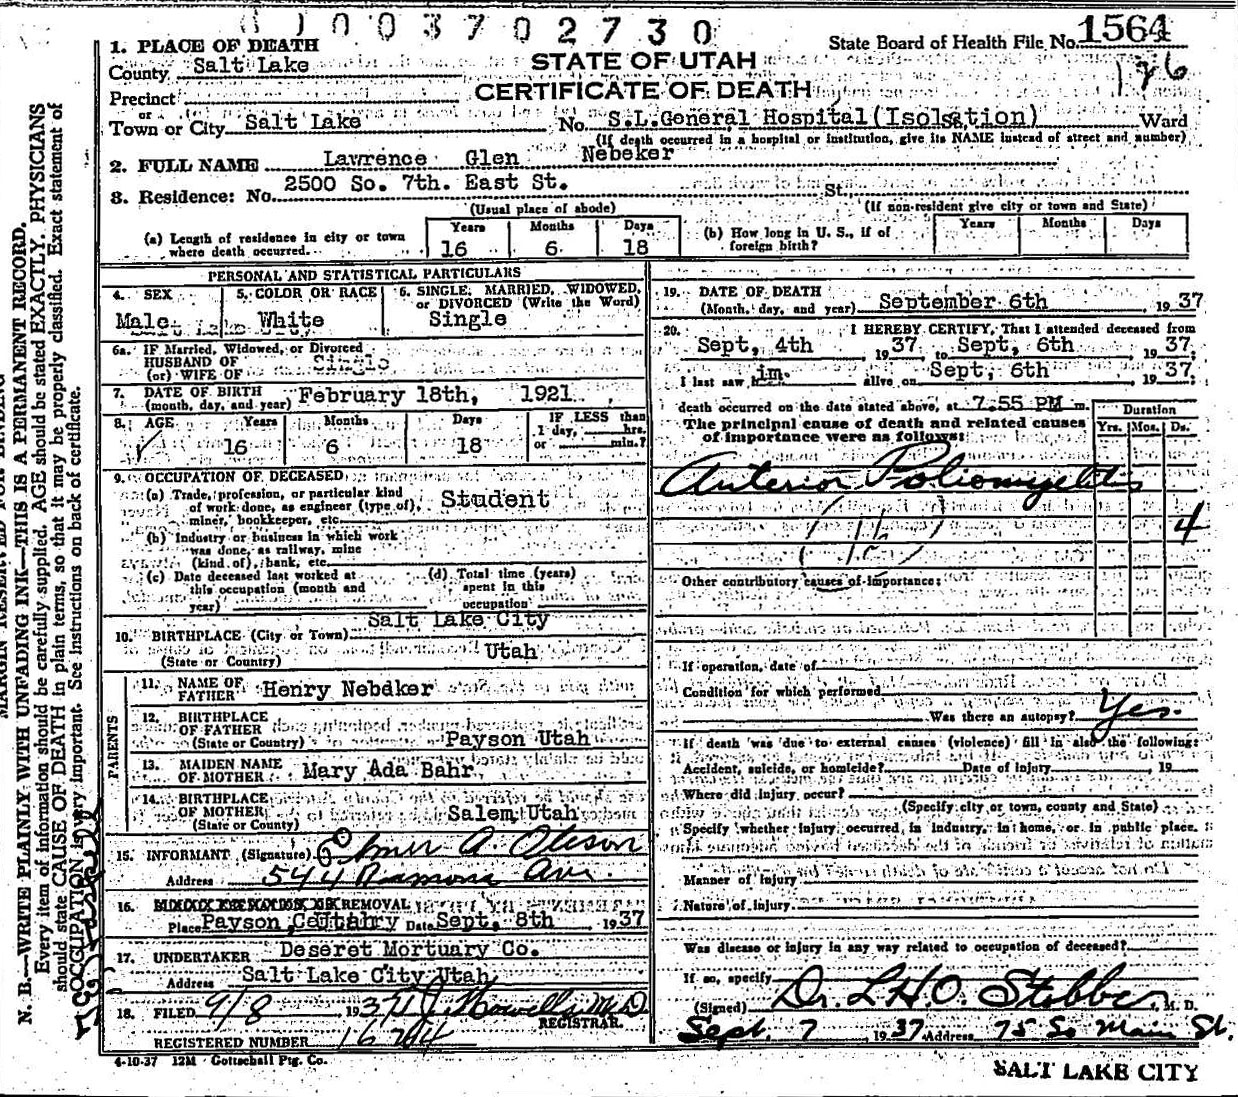 003702730
State Board of Health File No. 1564
126
1. PLACE OF DEATH
County Salt Lake
STATE OF UTAH
CERTIFICATE OF DEATH
Precinct
or
Town or City Salt Lake No. S.L.General Hospital(Isolsation) Ward
(If death occurred in a hospital or institution, give its NAME instead of street and number)
2. FULL NAME Lawrence Glen Nebeker
3. Residence: No. 2500 So. 7th. East St. St.
(Usual place of abode) (If non-resident give city or town and State)
(a) Length of residence in city or town where death occurred. Years 16 Months 6 Days 18
(b) How long in U. S., if of foreign birth? Years Months Days
PERSONAL AND STATISTICAL PARTICULARS
4. SEX Male
5. COLOR OR RACE White
6. SINGLE, MARRIED, WIDOWED, or DIVORCED (Write the Word) Single
6a. IF Married, Widowed, or Divorced
HUSBAND OF
(or) WIFE OF Single
7. DATE OF BIRTH
(month, day, and year) February 18th, 1921
8. AGE Years 16 Months 6 Days 18
IF LESS than 1 day, hrs. or min.?
9. OCCUPATION OF DECEASED
(a) Trade, profession, or particular kind of work done, as engineer (type of), miner, bookkeeper, etc. Student
(b) Industry or business in which work was done, as railway, mine (kind of), bank, etc.
(c) Date deceased last worked at this occupation (month and year)
(d) Total time (years) spent in this occupation
10. BIRTHPLACE (City or Town) Salt Lake City
(State or Country) Utah
PARENTS
11. NAME OF FATHER Henry Nebeker
12. BIRTHPLACE OF FATHER
(State or Country) Payson Utah
13. MAIDEN NAME OF MOTHER Mary Ada Bahr
14. BIRTHPLACE OF MOTHER
(State or Country) Salem Utah
15. INFORMANT (Signature) A. Oteson
Address 544 Ramona Ave.
16. REMOVAL
Place Payson, Utah Date Sept, 8th 1937
17. UNDERTAKER Deseret Mortuary Co.
Address Salt Lake City Utah
18. FILED 9/8 1937 Howells M.D
REGISTRAR.
REGISTERED NUMBER
4-10-37 12M Gottschall Ptg. Co.
19. DATE OF DEATH
(Month, day, and year) September 6th 1937
20. I HEREBY CERTIFY, That I attended deceased from
Sept, 4th 1937 to Sept, 6th 1937;
I last saw him. alive on Sept, 6th 1937;
death occurred on the date stated above, at 7.55 PM m.
The principal cause of death and related causes of importance were as follows:
Duration
Yrs. Mos. Ds.
Anterior Poliomyelitis
4
(16)
Other contributory causes of importance:
If operation, date of
Condition for which performed
Was there an autopsy? Yes.
If death was due to external causes (violence) fill in also the following:
Accident, suicide, or homicide? Date of injury 19
Where did injury occur?
(Specify city or town, county and State)
Specify whether injury occurred, in industry, in home, or in public place.
Manner of injury
Nature of injury
Was disease or injury in any way related to occupation of deceased?
If so, specify
(Signed) Dr. L.H.O. Stobbe, M. D.
Sept. 7 1937 Address 75 So Main St.
SALT LAKE CITY
MARGIN RESERVED FOR BINDING
N. B.—WRITE PLAINLY WITH UNFADING INK—THIS IS A PERMANENT RECORD.
Every item of information should be carefully supplied. AGE should be stated EXACTLY. PHYSICIANS
should state CAUSE OF DEATH in plain terms, so that it may be properly classified. Exact statement of
OCCUPATION is very important. See instructions on back of certificate.